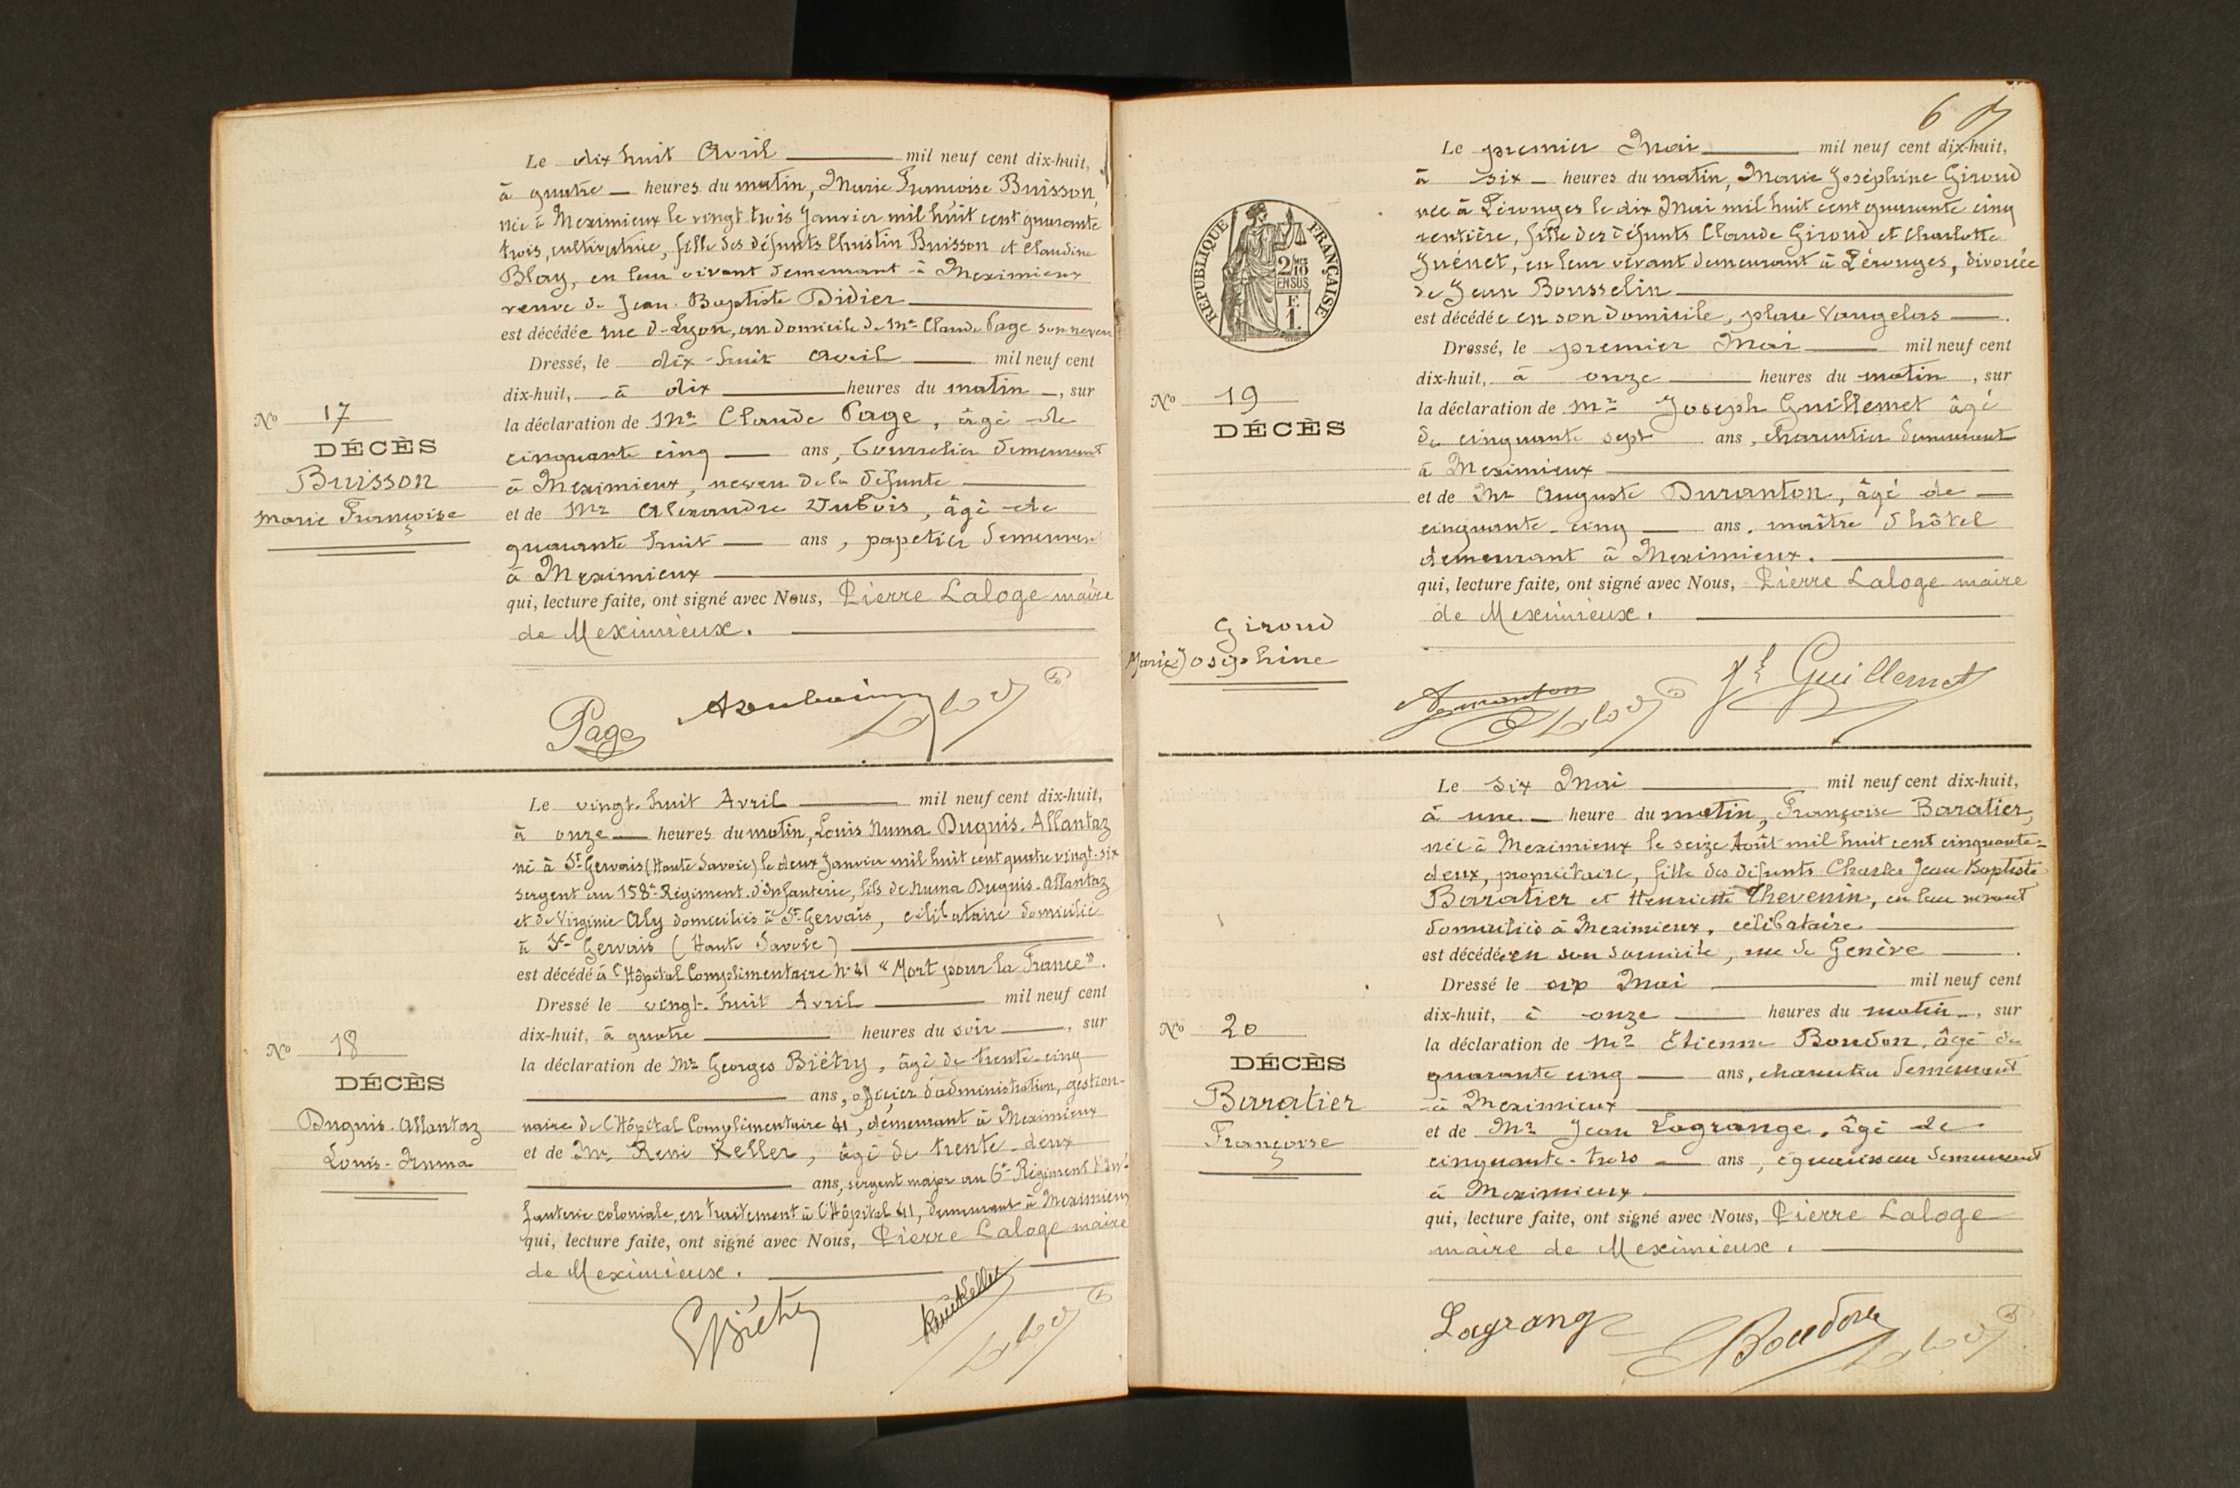 Le dix huit Avril mil neuf cent dix-huit,
à quatre heures du matin, Marie Françoise Buisson,
née à Meximieux le vingt-trois Janvier mil huit cent quarante
trois, cultivatrice, fille des défunts Christin Buisson et Claudine
Blay, en leur vivant demeurant à Meximieux
veuve de Jean-Baptiste Didier
est décédée rue de Lyon, au domicile de Mr Claude Page son neveu
Dressé, le dix-huit Avril mil neuf cent
dix-huit, à dix heures du matin, sur
la déclaration de Mr Claude Page, âgé de
cinquante cinq ans, Bourrelier demeurant
à Meximieux, neveu de la défunte
et de Mr Alexandre Dubois, âgé de
quarante huit ans, papetier demeurant
à Meximieux
qui, lecture faite, ont signé avec Nous, Pierre Laloge maire
de Meximieux.
No 17
DÉCÈS
Buisson
Marie Françoise
Page
Le vingt-huit Avril mil neuf cent dix-huit,
à onze heures du matin, Louis Numa Duquis-Allantaz
né à St Gervais (Haute Savoie) le deux Janvier mil huit cent quatre vingt-six
sergent au 158e Régiment d'Infanterie, fils de Numa Duquis-Allantaz
et de Virginie Aly domiciliés à St Gervais, célibataire domicilié
à St Gervais (Haute Savoie)
est décédé à l'Hôpital Complimentaire No 41 "Mort pour la France".
Dressé le vingt-huit Avril mil neuf cent
dix-huit, à quatre heures du soir, sur
la déclaration de Mr Georges Biétry, âgé de trente-cinq
ans, officier d'administration, gestion-
naire de l'Hôpital Complimentaire 41, demeurant à Meximieux
et de Mr René Keller, âgé de trente-deux
ans, sergent major au 6e Régiment d'In-
fanterie coloniale, en traitement à l'Hôpital 41, demeurant à Meximieux
qui, lecture faite, ont signé avec Nous, Pierre Laloge maire
de Meximieux.
No 18
DÉCÈS
Duquis-Allantaz
Louis-Numa
GBiétry
René Keller
6
RÉPUBLIQUE FRANÇAISE
2/10
EN SUS
Le premier Mai mil neuf cent dix-huit,
à six heures du matin, Marie Joséphine Giroud
née à Pérouges le dix Mai mil huit cent quarante cinq
rentière, fille des défunts Claude Giroud et Charlotte
Juénet, en leur vivant demeurant à Pérouges, divorcée
de Jean Bousselin
est décédée en son domicile, place Vaugelas.
Dressé, le premier Mai mil neuf cent
dix-huit, à onze heures du matin, sur
la déclaration de Mr Joseph Guillemet âgé
de cinquante sept ans, charcutier demeurant
à Meximieux
et de Mr Auguste Duranton, âgé de
cinquante-cinq ans, maître d'hôtel
demeurant à Meximieux.
qui, lecture faite, ont signé avec Nous, Pierre Laloge maire
de Meximieux.
No 19
DÉCÈS
Giroud
Marie Joséphine
Jh Guillemet
Le six Mai mil neuf cent dix-huit,
à une heure du matin, Françoise Baratier,
née à Meximieux le seize Août mil huit cent cinquante-
deux, propriétaire, fille des défunts Charles Jean Baptiste
Baratier et Henriette Thevenin, en leur vivant
domiciliés à Meximieux, célibataire
est décédée en son domicile, rue de Genève.
Dressé le six Mai mil neuf cent
dix-huit, à onze heures du matin, sur
la déclaration de Mr Etienne Boudon, âgé de
quarante cinq ans, charcutier demeurant
à Meximieux
et de Mr Jean Lagrange, âgé de
cinquante-trois ans, demeurant
à Meximieux
qui, lecture faite, ont signé avec Nous, Pierre Laloge
maire de Meximieux.
No 20
DÉCÈS
Baratier
Françoise
Lagrange
EBoudon